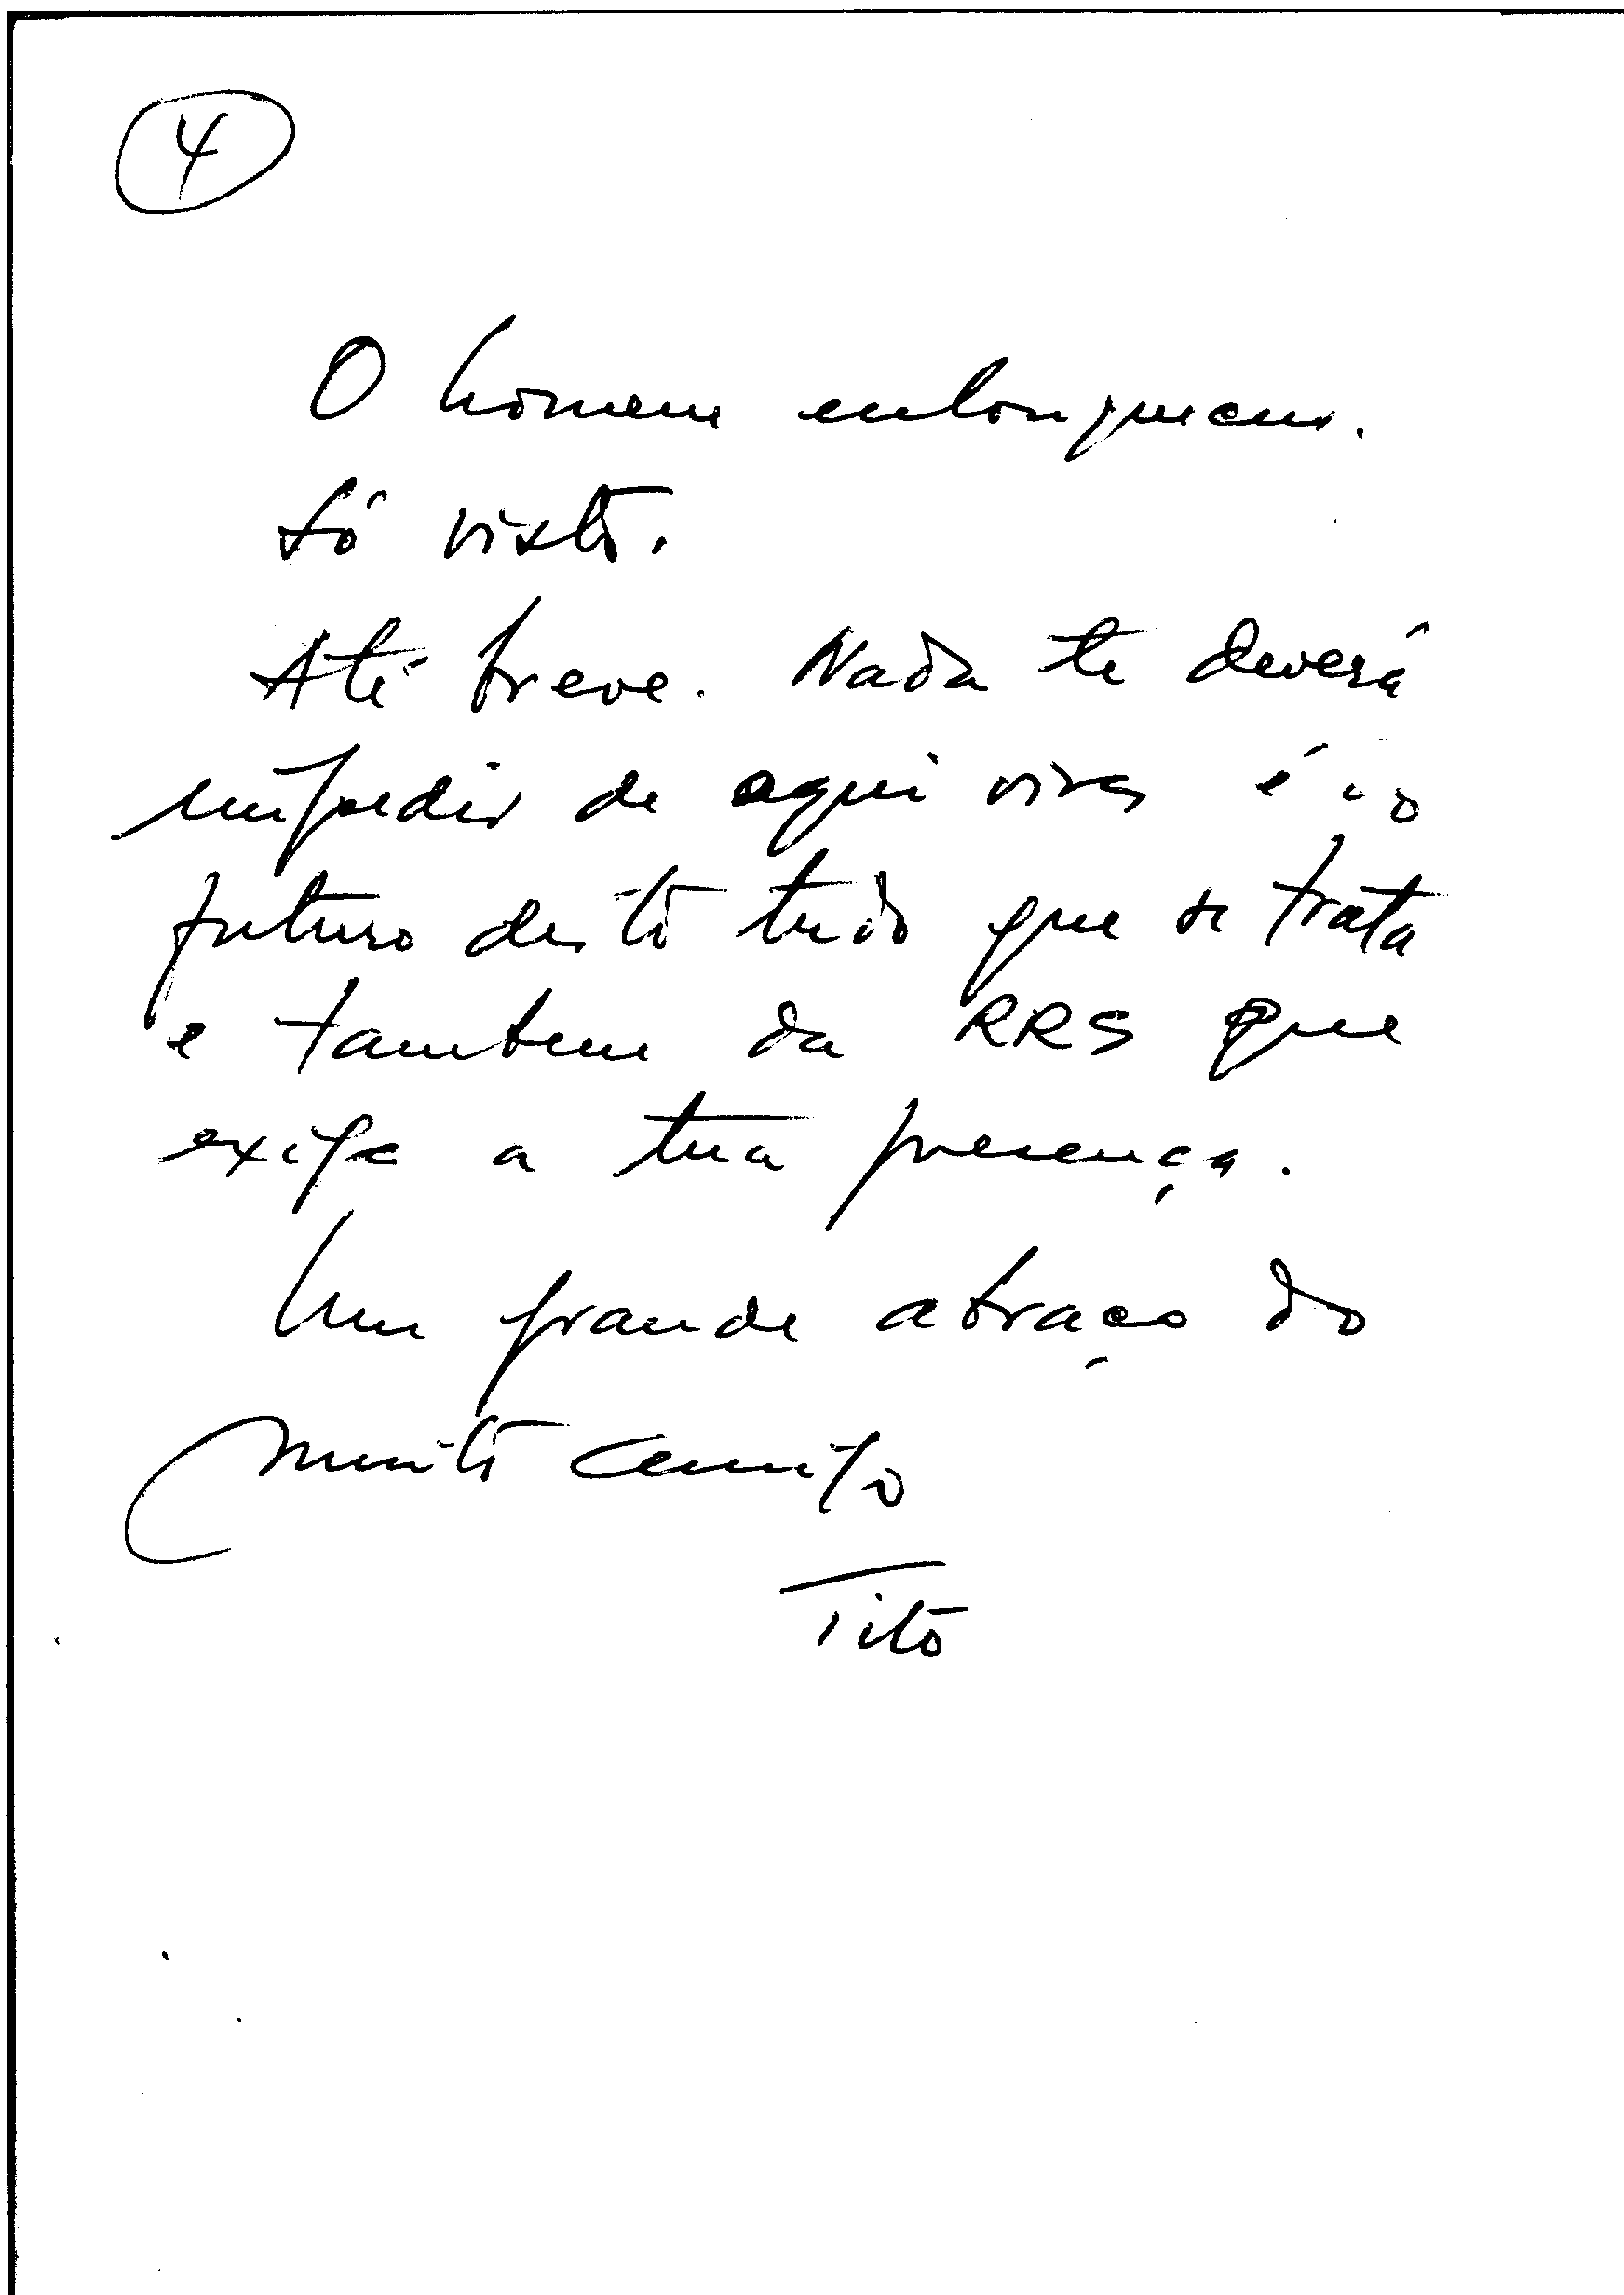 4
O homem enlouqueceu.
Só visto.
Até breve. Nada te deverá
impedir de aqui vires é o
futuro disto tudo que se trata
e tambem da RRS que
exige a tua presença.
Um grande abraço do
muito amigo
Tito